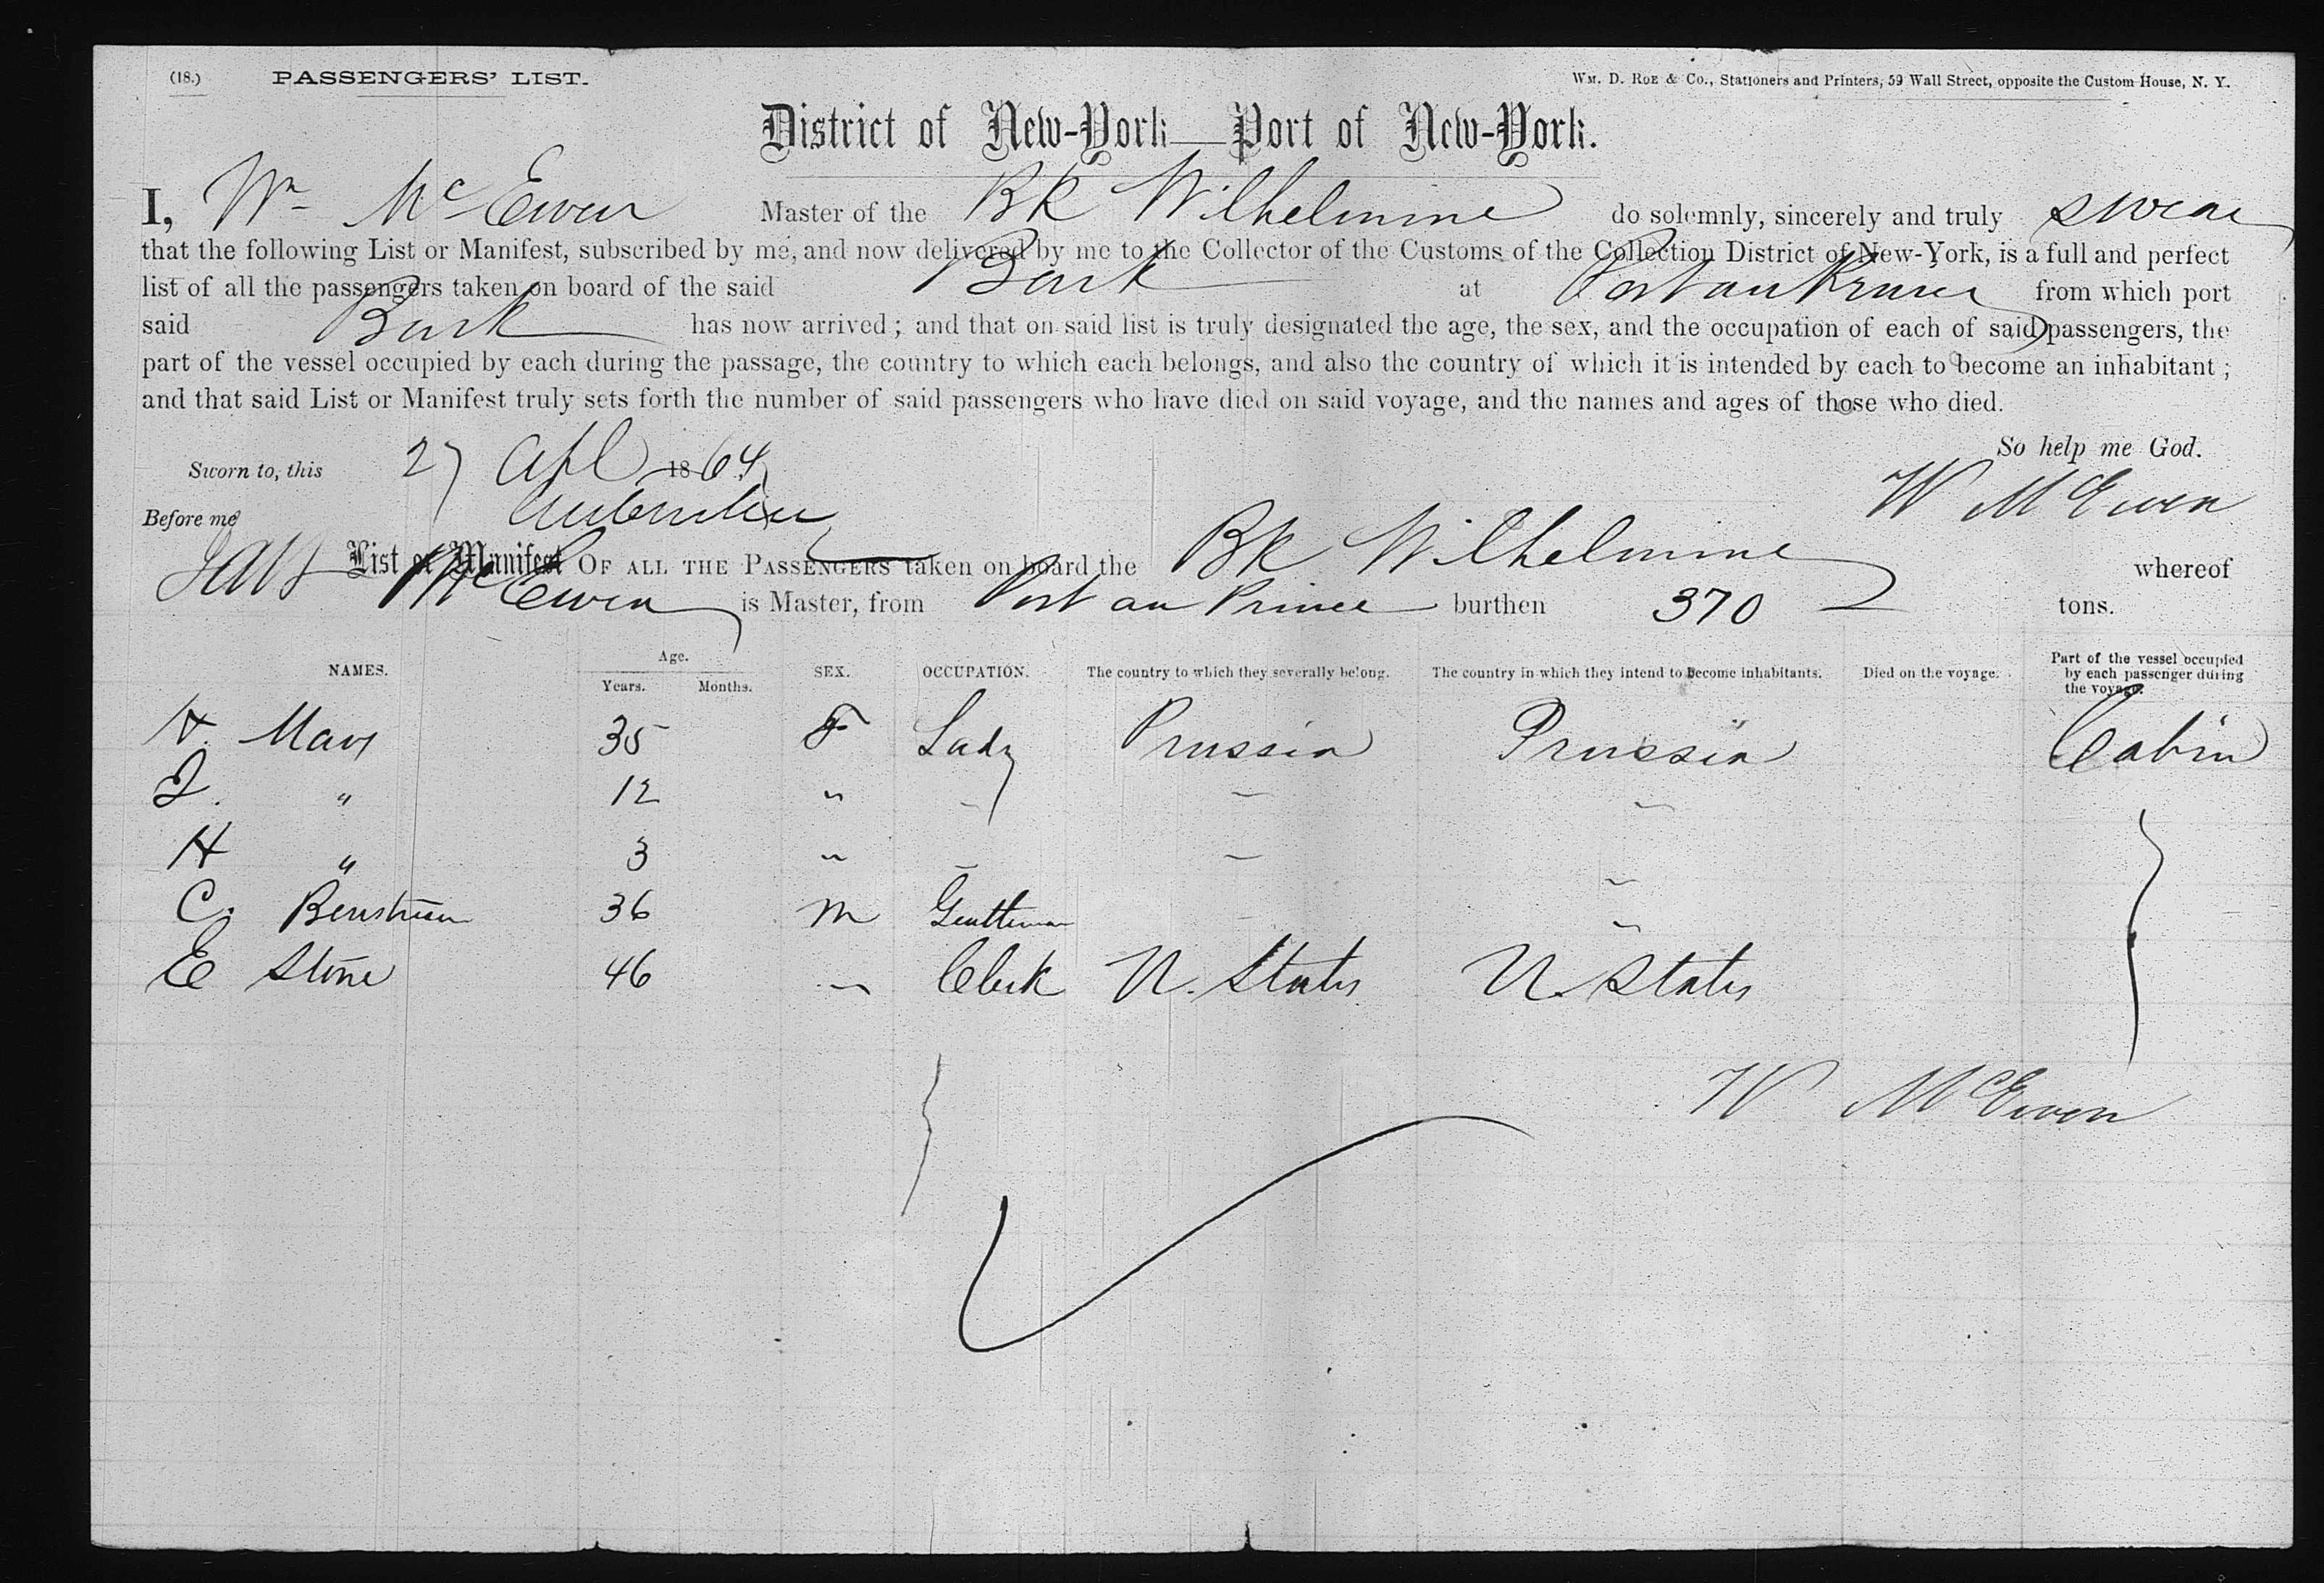 (18.) PASSENGERS' LIST. WM. D. ROE & Co., Stationers and Printers, 59 Wall Street, opposite the Custom House, N. Y.
District of New-York—Port of New-York.
I, Wm McEwen Master of the Bk Wilhelmine do solemnly, sincerely and truly swear
that the following List or Manifest, subscribed by me, and now delivered by me to the Collector of the Customs of the Collection District of New-York, is a full and perfect
list of all the passengers taken on board of the said Bark at Port au Prince from which port
said Bark has now arrived; and that on said list is truly designated the age, the sex, and the occupation of each of said passengers, the
part of the vessel occupied by each during the passage, the country to which each belongs, and also the country of which it is intended by each to become an inhabitant;
and that said List or Manifest truly sets forth the number of said passengers who have died on said voyage, and the names and ages of those who died.
So help me God.
Sworn to, this 27 Apl 1864
W McEwen
Before me
List or Manifest OF ALL THE PASSENGERS taken on board the Bk Wilhelmine whereof
McEwen is Master, from Port au Prince burthen 370 tons.
NAMES. Age. Years. Months. SEX. OCCUPATION. The country to which they severally belong. The country in which they intend to become inhabitants. Died on the voyage. Part of the vessel occupied by each passenger during the voyage.
35 F Lady Prussia Prussia Cabin
J. " 12 "
H " 3 "
C. 36 M Gentleman
E Stone 46 " Clerk U. States U. States
W McEwen